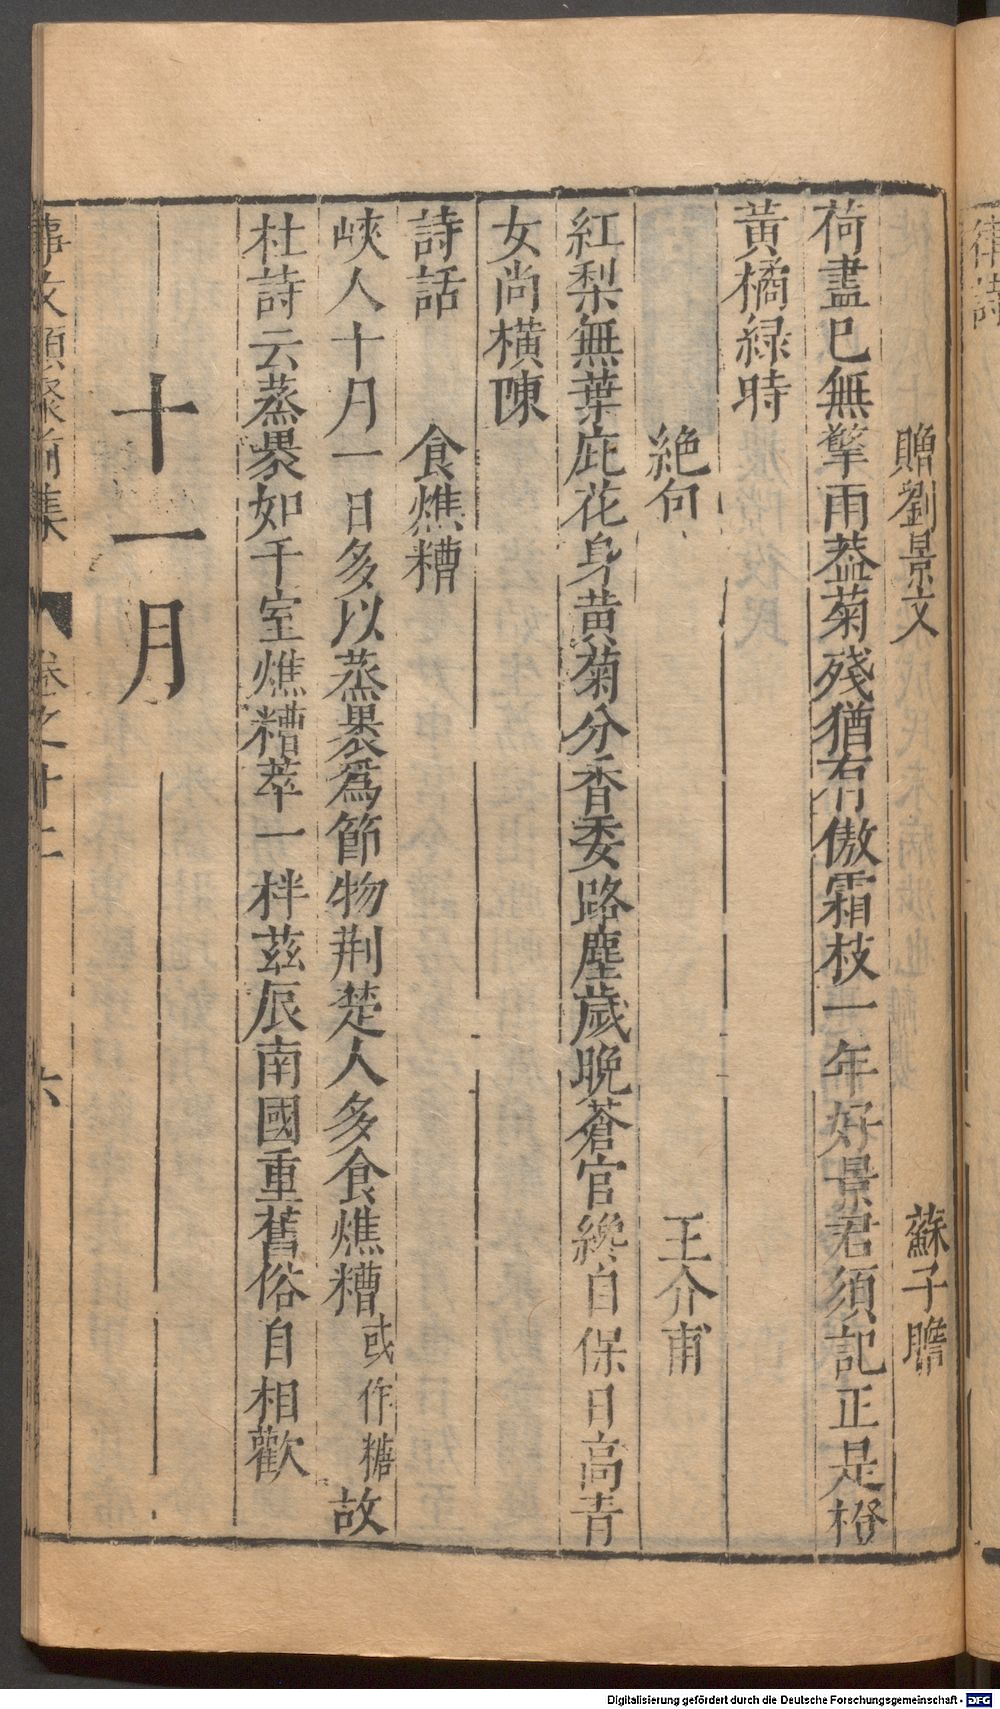 贈劉景文 蘇子瞻
荷盡已無擎雨葢菊殘猶有傲霜枝一年好景君須記正是橙
黃橘緑時
絶句 王介甫
紅梨無葉庇花身黄菊分香委路塵歲晚蒼官纔自保日高青
女尚橫陳
詩話 食燋糟
峽人十月一日多以蒸褁爲節物荆楚人多食燋糟或作糖故
杜詩云蒸褁如千室燋糟萃一柈茲辰南國重舊俗自相歡
十一月
事文類聚前集 卷之十二 六
律詩
Digitalisierung gefördert durch die Deutsche Forschungsgemeinschaft - DFG